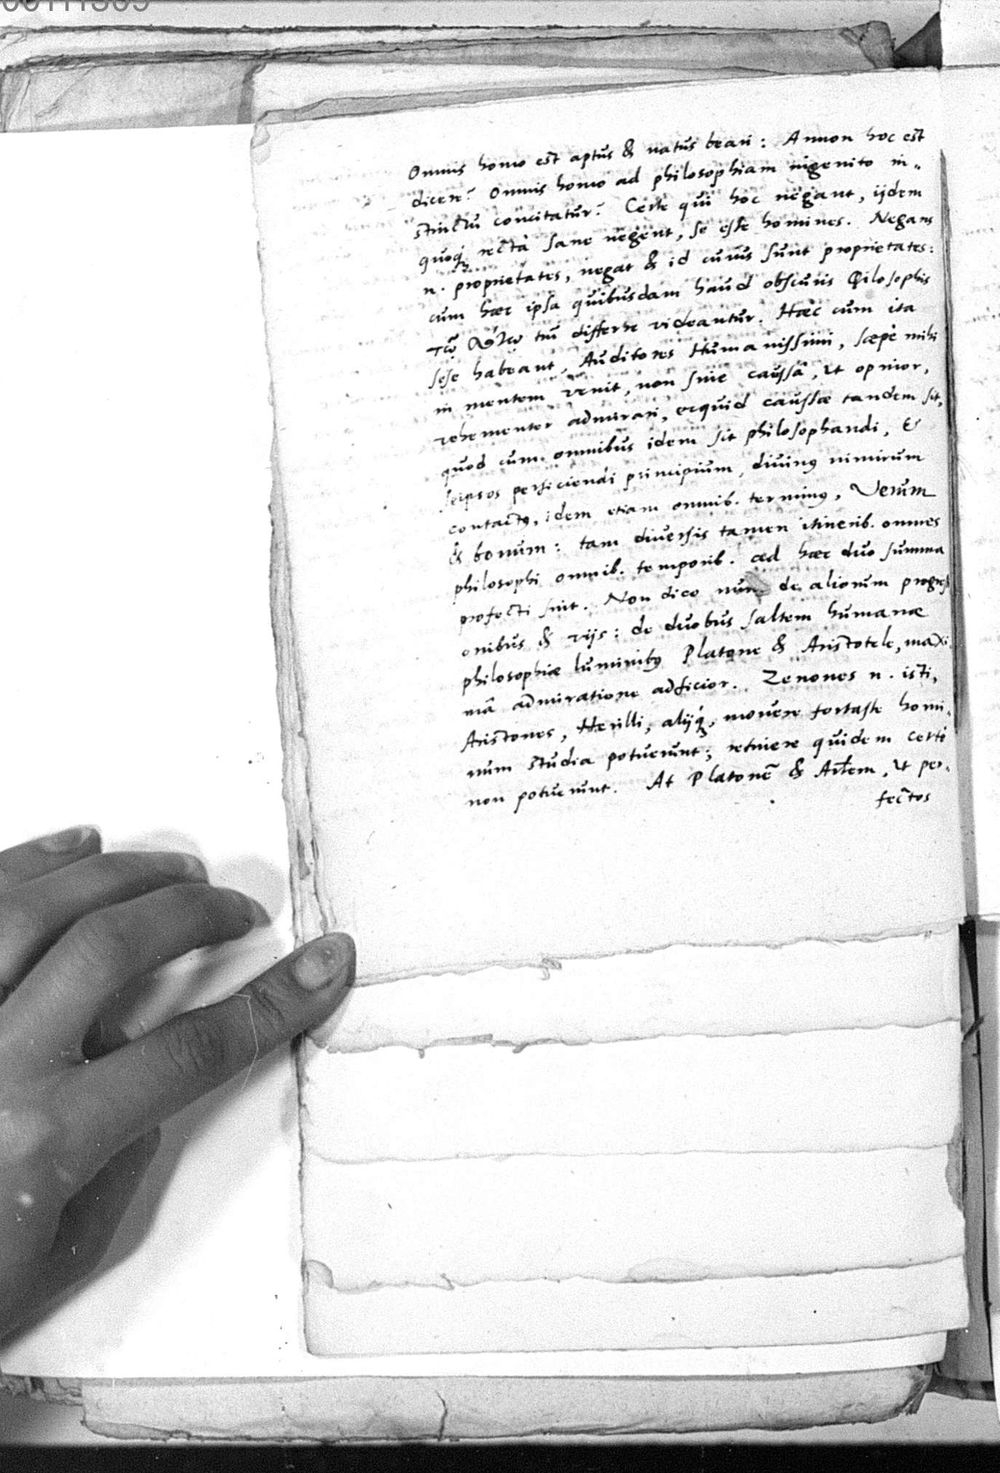 00111309
Omnis homo est aptus & natus beari: Annon hoc est
dicere? Omnis homo ad philosophiam ingenito in-
stinctu concitatur? Certe qui hoc negant, ijdem
quoq́; recta sane negent, se esse homines. Negans
n. proprietates, negat & id cuius sunt proprietates:
cum hæc ipsa quibusdam haud obscuris Philosophis
τῷ λόγῳ tm̄ differre videantur. Hæc cum ita
sese habeant, Auditores Humanissimi, sæpè mihi
in mentem venit, non sine caussâ, ut opinor,
vehementer admirari, ecquid caussæ tandem sit,
quod cum omnibus idem sit philosophandi, &
seipsos perficiendi principium, divinus nimirum
contactus, idem etiam omnib. terminus, Verum
& bonum: tam diversis tamen itinerib. omnes
philosophi omnib. temporib. ad hæc duo summa
profecti sint. Non dico nunc de aliorum progressi
onibus & vijs: de duobus saltem humanæ
philosophiæ luminibus Platone & Aristotele, maxi
mâ admiratione adficior. Zenones n. isti,
Aristones, Herilli, alijq́; movere fortasse homi-
num studia potuerunt; retinere quidem certè
non potuerunt. At Platonē & Arl̄em, ut per-
fectos